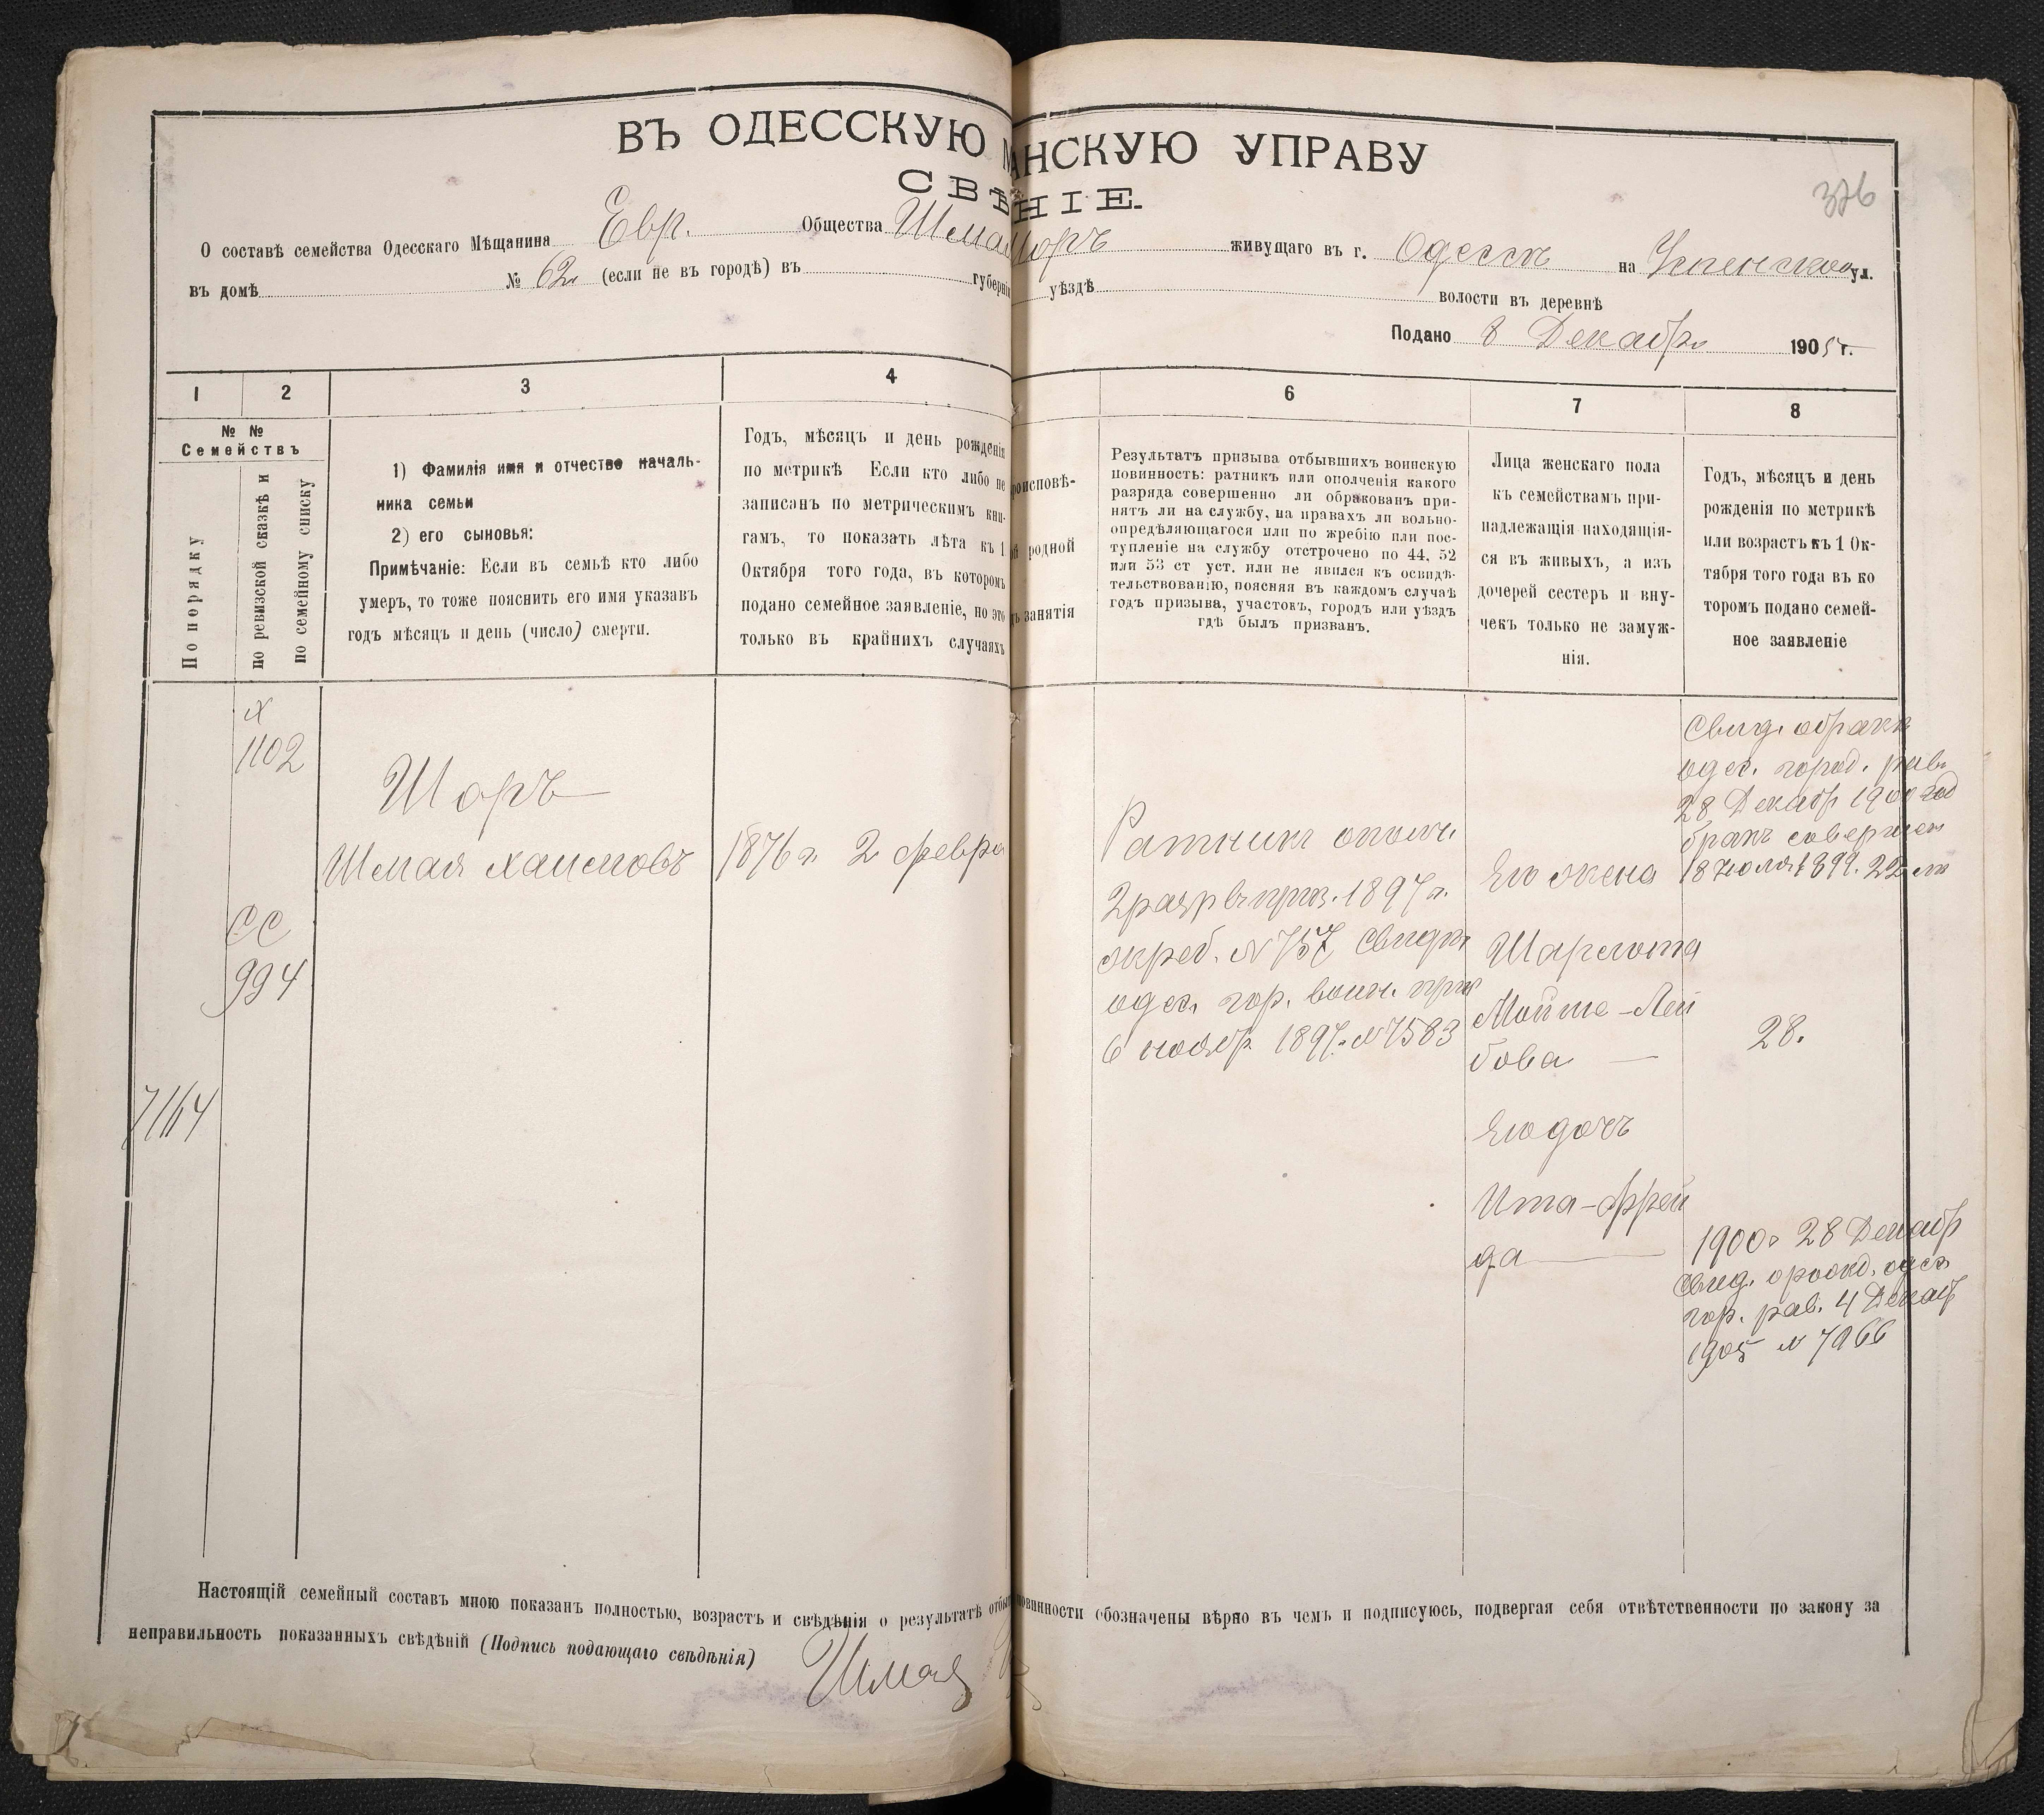 ВЪ ОДЕССКУЮ М АНСКУЮ УПРАВУ
СВѢ НІЕ.
326
О составѣ семейства Одесскаго Мѣщанина Евр. Общества Шмая Шоръ живущаго въ г. Одессѣ на Успенской ул.
въ домѣ № 62 (если не въ городѣ) въ губерніи уѣздѣ волости въ деревнѣ
Подано 8 Декабр 1905 г.
1 2 3 4 6 7 8
№ №
Семействъ
По порядку
по ревизской сказкѣ и
по семейному списку
1) Фамилія имя и отчество началь-
ника семьи
2) его сыновья:
Примѣчаніе: Если въ семьѣ кто либо
умеръ, то тоже пояснить его имя указавъ
годъ мѣсяцъ и день (число) смерти.
Годъ, мѣсяцъ и день рожденія
по метрикѣ Если кто либо не
записанъ по метрическимъ кни-
гамъ, то показать лѣта къ 1
Октября того года, въ которомъ
подано семейное заявленіе, но это
только въ крайнихъ случаяхъ
роисповѣ-
й родной
ъ занятія
Результатъ призыва отбывшихъ воинскую
повинность: ратникъ или ополченія какого
разряда совершенно ли обракованъ при-
нятъ ли на службу, на правахъ ли вольно-
опредѣляющагося или по жребію или пос-
тупленіе на службу отстрочено по 44, 52
или 53 ст уст. или не явился къ освидѣ-
тельствованію, поясняя въ каждомъ случаѣ
годъ призыва, участокъ, городъ или уѣздъ
гдѣ былъ призванъ.
Лица женскаго пола
къ семействамъ при-
надлежащія находящія-
ся въ живыхъ, а изъ
дочерей сестеръ и вну-
чекъ только не замуж-
нія.
Годъ, мѣсяцъ и день
рожденія по метрикѣ
или возрастъ къ 1 Ок-
тября того года въ ко
торомъ подано семей-
ное заявленіе
1102
СС
994
7164
Шоръ
Шмая Хаимовъ
1876 г. 2 февра
Ратникъ ополч.
2 разр въ приз. 1897 г.
жреб. № 757 Свидѣт
одес. гор. воин. прис
6 ноябр. 1897. № 7583
Его жена
Шарлота
Мойше-Лей
бова —
Его дочь
Ита-Фрей
да —
Свид. о бракѣ
одес. город. рав.
28 Декабр 1900 год
бракъ совершен
18 Июля 1899. 22 лѣт
28.
1900 г 28 Декабр
Свид. о рожд. одес.
гор. рав. 4 Декаб
1905 № 7966
Настоящій семейный составъ мною показанъ полностью, возрастъ и свѣдѣнія о результатѣ отбы повинности обозначены вѣрно въ чемъ и подписуюсь, подвергая себя отвѣтственности по закону за
неправильность показанныхъ свѣдѣній (Подпись подающаго свѣдѣнія)
Шмая